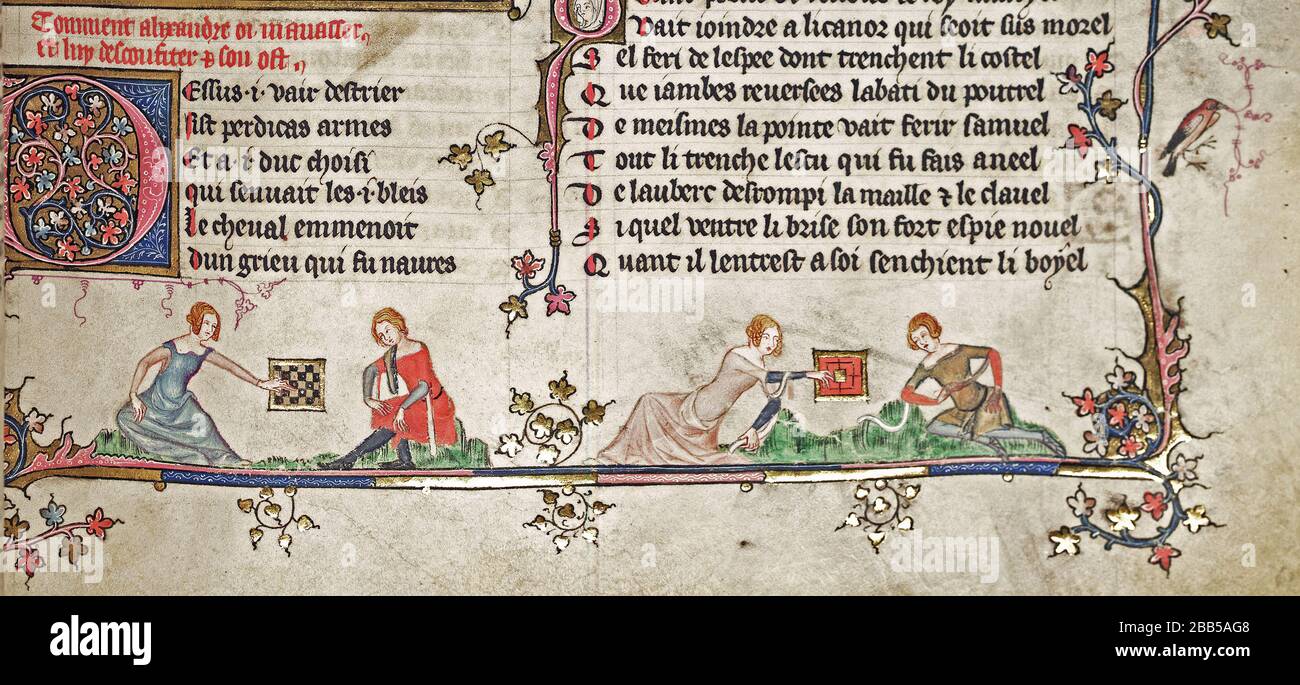 Comment alixandre
et luy desconfiter & son ost
Essus · i · vair destrier
sist perdicas armes
Et a · i · duc choisi
qui senuait les · i · bleis
Le cheual emmenoit
Dun grieu qui fu naures
Vait ioindre a licanor qui seoit sus morel
S el feri de lespee dont trenchent li costel
Q ue iambes reuersees labati du poutrel
D e meismes la pointe vait ferir samuel
T out li trenche lescu qui fu fais a neel
D e lauberc desrompi la maille & le clauel
S i quel ventre li brise son fort espie nouel
Q uant il lentrest a soi senchient li boyel
alamy
alamy
Image ID: 2BB5AG8
www.alamy.com